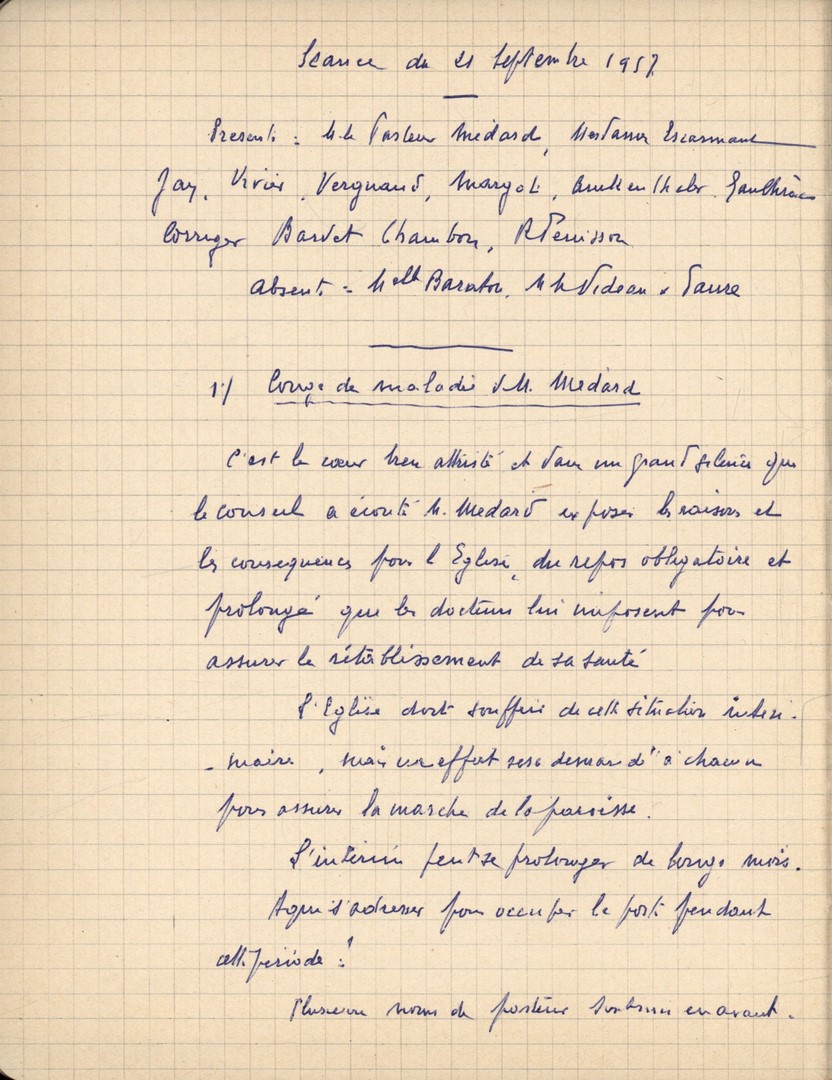 Séance du 21 Septembre 1957
Présents : M le Pasteur Médard, Mesdames Escarmant
Jay, Vivier, Vergnaud, Margot, Gaulthier
Corriger Bardet Chambon, R Penisson
Absents = Melle Baraton, M M Videau & Faure
1°/ Congé de maladie de M. Médard
C'est le cœur bien attristé et dans un grand silence que
le conseil a écouté M. Médard exposer les raisons et
les conséquences pour l'Eglise, du repos obligatoire et
prolongé que les docteurs lui imposent pour
assurer le rétablissement de sa santé
L'Eglise doit souffrir de cette situation intéri-
-maire, mais un effort sera demandé à chacun
pour assurer la marche de la paroisse.
L'intérim peut se prolonger de longs mois.
A qui s'adresser pour occuper le poste pendant
cette période ?
Plusieurs noms de pasteurs sont mis en avant.